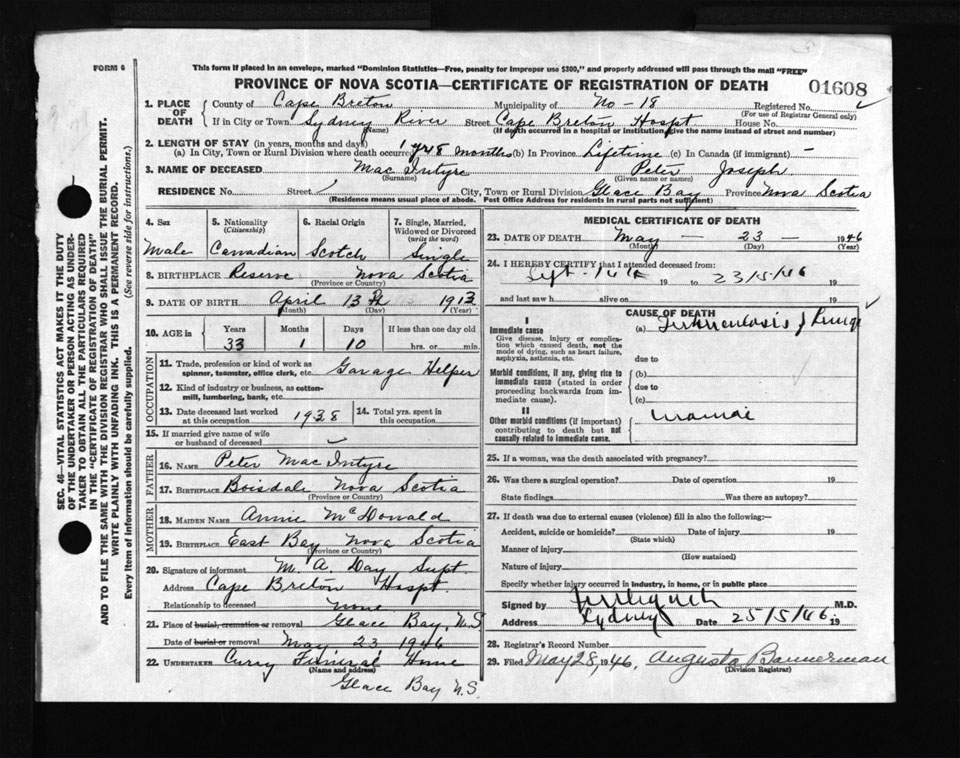 This form if placed in an envelope, marked "Dominion Statistics—Free, penalty for improper use $300," and properly addressed will pass through the mail "FREE"
FORM 6
PROVINCE OF NOVA SCOTIA—CERTIFICATE OF REGISTRATION OF DEATH
01608
SEC. 46—VITAL STATISTICS ACT MAKES IT THE DUTY
OF THE UNDERTAKER OR PERSON ACTING AS UNDER-
TAKER TO OBTAIN ALL THE PARTICULARS REQUIRED
IN THE "CERTIFICATE OF REGISTRATION OF DEATH"
AND TO FILE THE SAME WITH THE DIVISION REGISTRAR WHO SHALL ISSUE THE BURIAL PERMIT.
WRITE PLAINLY WITH UNFADING INK. THIS IS A PERMANENT RECORD.
Every item of information should be carefully supplied. (See reverse side for instructions.)
1. PLACE OF DEATH
County of Cape Breton Municipality of No-18 Registered No.
(For use of Registrar General only)
If in City or Town Sydney River Street Cape Breton Hospt House No.
(Name) (If death occurred in a hospital or institution give the name instead of street and number)
2. LENGTH OF STAY (in years, months and days)
(a) In City, Town or Rural Division where death occurred 1 y 8 months (b) In Province Lifetime (c) In Canada (if immigrant) -
3. NAME OF DECEASED Mac Intyre Peter Joseph
(Surname) (Given name or names)
RESIDENCE No. Street City, Town or Rural Division Glace Bay Province Nova Scotia
(Residence means usual place of abode. Post Office Address for residents in rural parts not sufficient)
4. Sex 5. Nationality (Citizenship) 6. Racial Origin 7. Single, Married, Widowed or Divorced (write the word)
Male Canadian Scotch Single
8. BIRTHPLACE Reserve Nova Scotia
(Province or Country)
9. DATE OF BIRTH April 13th 1913
(Month) (Day) (Year)
10. AGE in Years Months Days If less than one day old
33 1 10 hrs. or min.
OCCUPATION
11. Trade, profession or kind of work as spinner, teamster, office clerk, etc. Garage Helper
12. Kind of industry or business, as cotton-mill, lumbering, bank, etc.
13. Date deceased last worked at this occupation 1938 14. Total yrs. spent in this occupation
15. If married give name of wife or husband of deceased
FATHER
16. NAME Peter MacIntyre
17. BIRTHPLACE Boisdale Nova Scotia
(Province or Country)
MOTHER
18. MAIDEN NAME Annie McDonald
19. BIRTHPLACE East Bay Nova Scotia
(Province or Country)
20. Signature of informant M. A. Day Supt.
Address Cape Breton Hospt.
Relationship to deceased none
21. Place of burial, cremation or removal Glace Bay, N.S
Date of burial or removal May 23 1946
22. UNDERTAKER Curry Funeral Home
(Name and address)
Glace Bay N.S.
MEDICAL CERTIFICATE OF DEATH
23. DATE OF DEATH May - 23 - 1946
(Month) (Day) (Year)
24. I HEREBY CERTIFY that I attended deceased from:
Sept - 14 19 to 23/5/46 19
and last saw h alive on 19
CAUSE OF DEATH
I
Immediate cause (a) Tuberculosis of Lungs
Give disease, injury or complication which caused death, not the mode of dying, such as heart failure, asphyxia, asthenia, etc.
due to
Morbid conditions, if any, giving rise to immediate cause (stated in order proceeding backwards from immediate cause).
(b)
due to
(c)
II
Other morbid conditions (if important) contributing to death but not causally related to immediate cause.
25. If a woman, was the death associated with pregnancy?
26. Was there a surgical operation? Date of operation 19
State findings Was there an autopsy?
27. If death was due to external causes (violence) fill in also the following:—
Accident, suicide or homicide? Date of injury 19
(State which)
Manner of injury
(How sustained)
Nature of injury
Specify whether injury occurred in industry, in home, or in public place
Signed by M.D.
Address Sydney Date 25/5/46 19
28. Registrar's Record Number
29. Filed May 28, 1946, Augusta Bannerman
(Division Registrar)